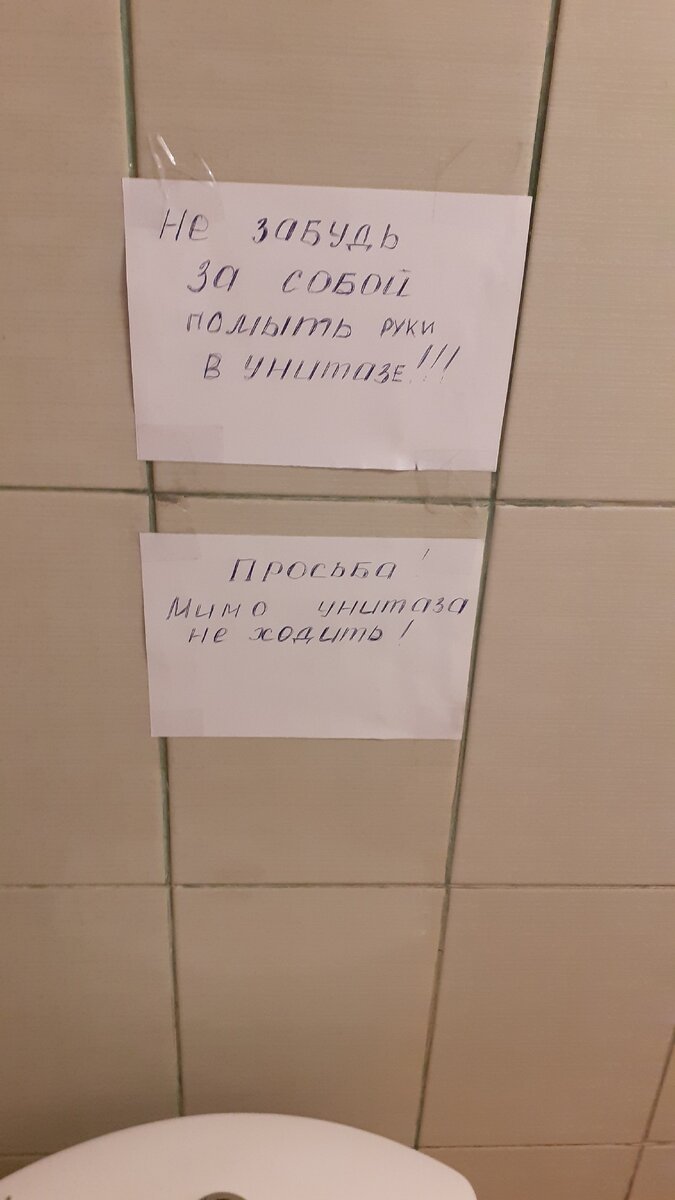 Не забудь
за собой
помыть руки
в унитазе!!!
Просьба!
Мимо унитаза
не ходить!